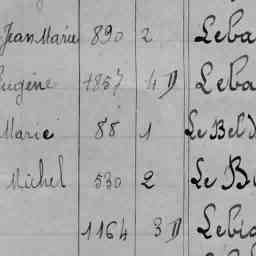 Jean Marie 890 2 Leba
Eugène 1857 4 D Leba
Marie 88 1 Le Bel
Michel 530 2 Le B
1164 3 D Lebi